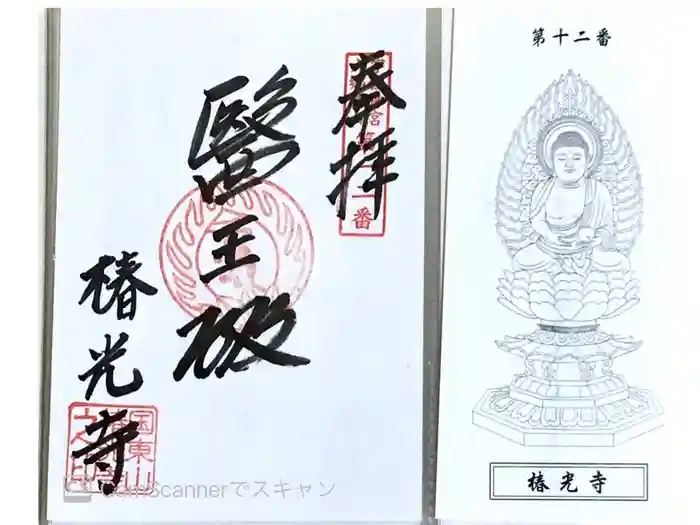 奉拝
醫王殿
椿光寺
第十二番
椿光寺
CamScannerでスキャン